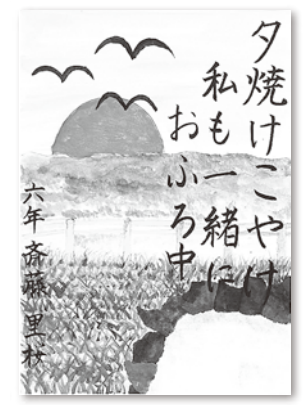 夕焼けこやけ
私も一緒に
おふろ中
六年斉藤里桜